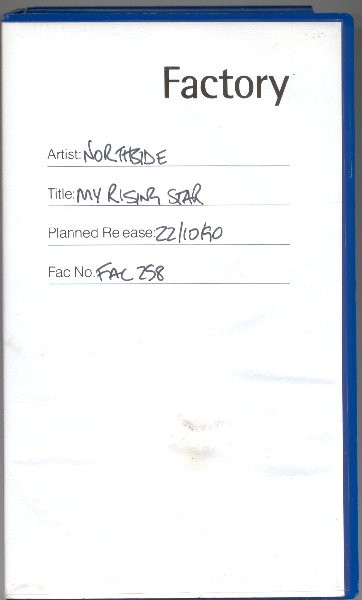 Factory
Artist: NORTHSIDE
Title: MY RISING STAR
Planned Release: 22/10/90
Fac No. FAC 258